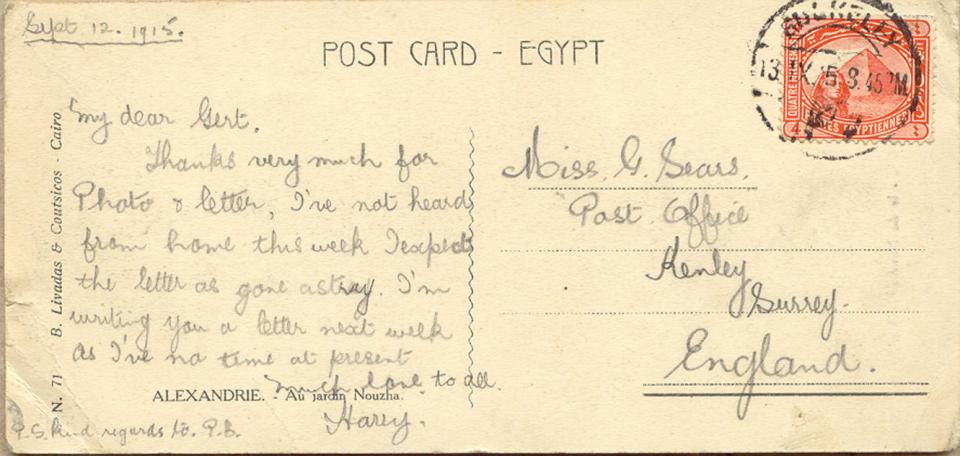 Sept 12. 1915.
POST CARD - EGYPT
My dear Gert.
Thanks very much for
Photo & letter, I've not heard
from home this week I expect
the letter as gone astray. I'm
writing you a letter next week
as I've no time at present
much love to all.
Harry.
P.S. Kind regards to. P.B.
ALEXANDRIE. - Au jardin Nouzha.
N. 71 B. Livadas & Coutsicos - Cairo
BULKELEY
13 IX 15 3.45 PM
QUATRE
POSTES EGYPTIENNES
4
Miss. G. Sears.
Post Office
Kenley
Surrey.
England.